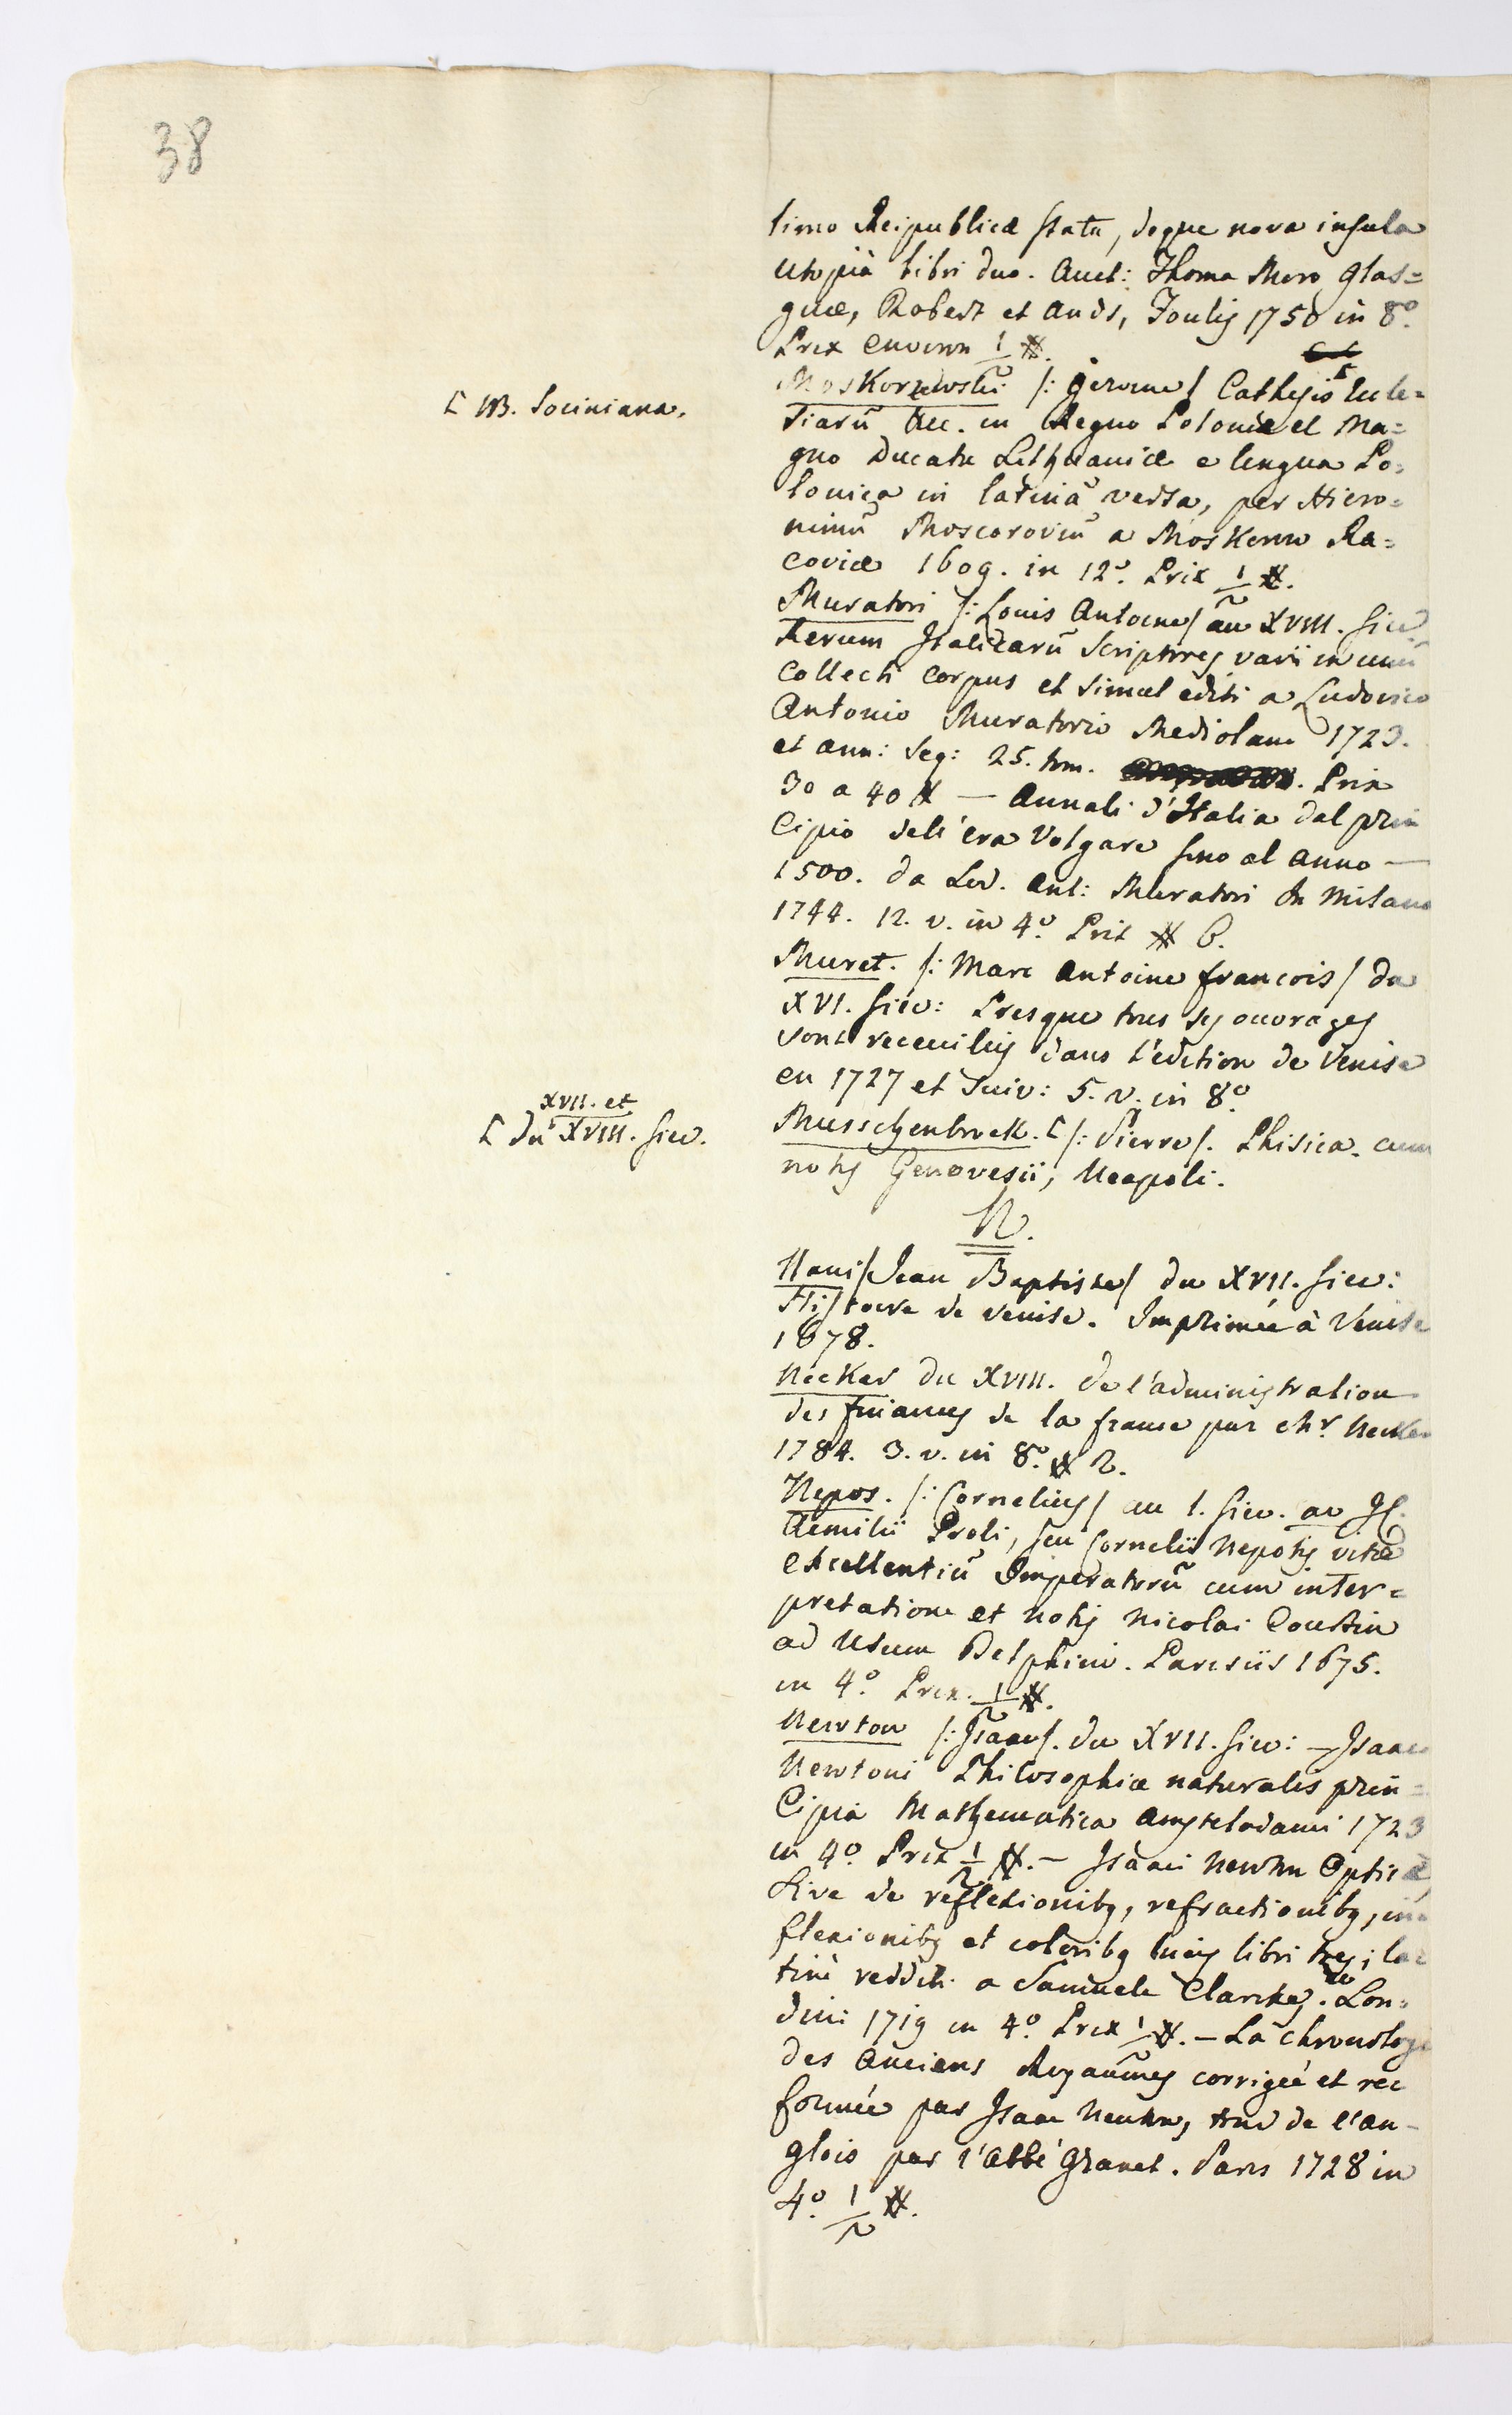 38
timo Reipublicæ statu, deque nova insula
Utopia libri duo. Auct: Thoma Moro Glas=
guæ, Robert et Ands, Foulis 1750 in 8º.
Prix environ 1/2 #.
Moskorzewski /: Jerome/ Cathesis [ Eccle=
[ NB. Sociniana.
siarū &c. in Regno Poloniæ et Ma=
gno Ducatu Lithuaniæ e lingua Po=
lonica in latinā versa, per Hiero=
nimū Moscoroviū a Moskorow Ra=
coviæ 1609. in 12º. Prix 1/2 #.
Muratori /: Louis Antoine/ au XVIII. siec.
Rerum Italicarū Scriptores varii in unū
Collecti corpus et simul editi a Ludovico
Antonio Muratorio Mediolani 1723.
et ann: seq: 25. tom. Prix
30 a 40 # — Annali d'Italia dal prin
cipio dell'era Volgare sino al anno —
1500. da Lod. Ant: Muratori In Milano
1744. 12. v. in 4º. Prix # 6.
Muret. /: Marc Antoine francois/ du
XVI. siec: Presque tous ses ouvrages
sont receuilis dans l'edition de Venise
en 1727 et suiv: 5. v. in 8º.
Musschenbroek. [ /: Pierre/. Phisica. cum
XVII. et
[ du XVIII. siec.
notis Genovesii, Neapoli.
N.
Nani /Jean Baptiste/ du XVII. siec:
Histoire de Venise. Imprimée à Venise
1678.
Necker du XVIII. de l'administration
des finances de la france par Mr. Necker
1784. 3. v. in 8º. # 2.
Nepos. /: Cornelius/ au I. siec. av JC.
Aemilii Probi, seu Cornelii Nepotis vitæ
excellentiū Imperatorū cum inter=
pretatione et notis Nicolai Courtin
ad Usum Delphini. Parisiis 1675.
in 4º. Prix. 1/2 #.
Newton /: Isaac/. du XVII. siec: — Isaaci
Newtoni Philosophiæ naturalis prin=
cipia Mathematica Amstelodami 1723
in 4º. Prix 1/2 #. — Isaaci Newton Opticæ
sive de reflexionibq, refractionibq, in=
flexionibq et coloribq lucis libri tres; la=
tine redditi a Samuele Clarcke. Lon=
dini 1719 in 4º. Prix 1/2 #. — La Chronologie
des Anciens Royaumes corrigeé et re=
formée par Isaac Newton, trad de l'an=
glois par l'Abbé Granet. Paris 1728 in
4º. 1/2 #.